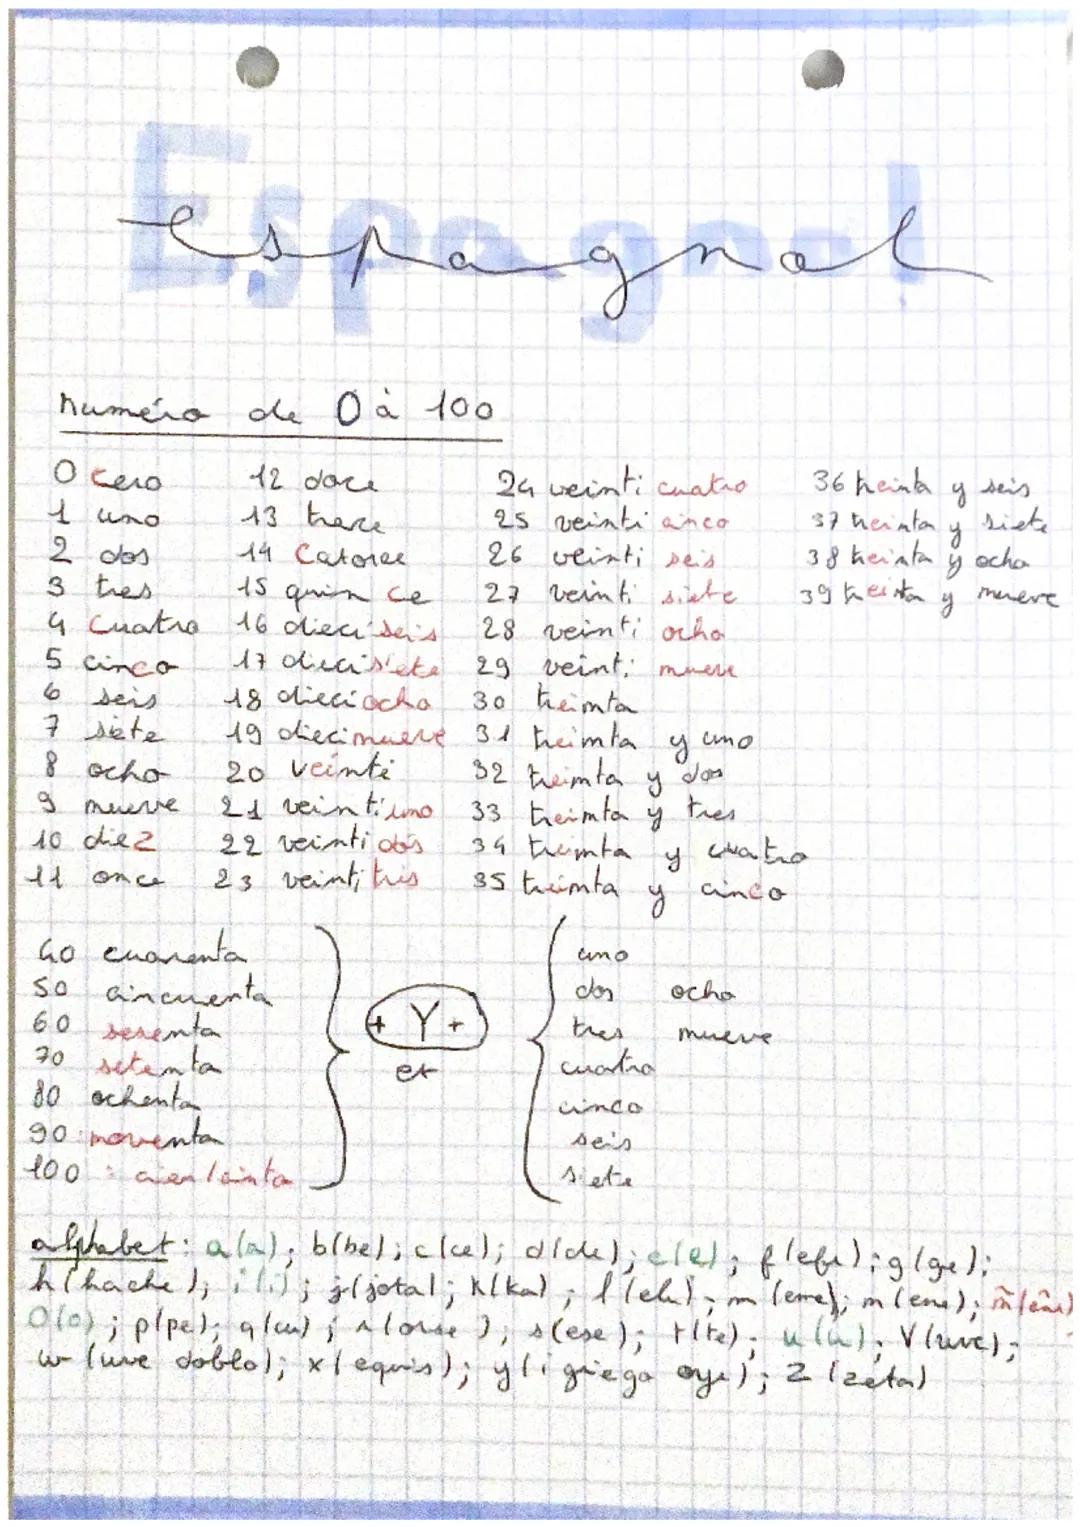 Espagnol
espagnol
Numéro de 0 à 100
0 cero 12 doce 24 veinti cuatro 36 treinta y seis
1 uno 13 trece 25 veinti cinco 37 treinta y siete
2 dos 14 Catorce 26 veinti seis 38 treinta y ocho
3 tres 15 quin ce 27 veinti siete 39 treinta y nueve
4 Cuatro 16 dieciseis 28 veinti ocho
5 cinco 17 diecisiete 29 veinti nueve
6 seis 18 dieciocho 30 treinta
7 siete 19 diecinueve 31 treinta y uno
8 ocho 20 veinte 32 treinta y dos
9 nueve 21 veintiuno 33 treinta y tres
10 diez 22 veinti dós 34 treinta y cuatro
11 once 23 veinti trés 35 treinta y cinco
40 cuarenta uno
50 cincuenta dos ocho
60 sesenta + Y + tres nueve
70 setenta et cuatro
80 ochenta cinco
90 noventa seis
100 : cien/cinto siete
alphabet : a(a); b(be); c(ce); d(de); e(e); f(efe); g(ge);
h(hache); i(i); j(jota); k(ka); l(ele); m(eme); n(ene); ñ(eñe)
O(o); p(pe); q(cu); r(orre); s(ese); t(te); u(u); V(uve);
w (uve doblo); x(equis); y(i griega oye); Z (zeta)